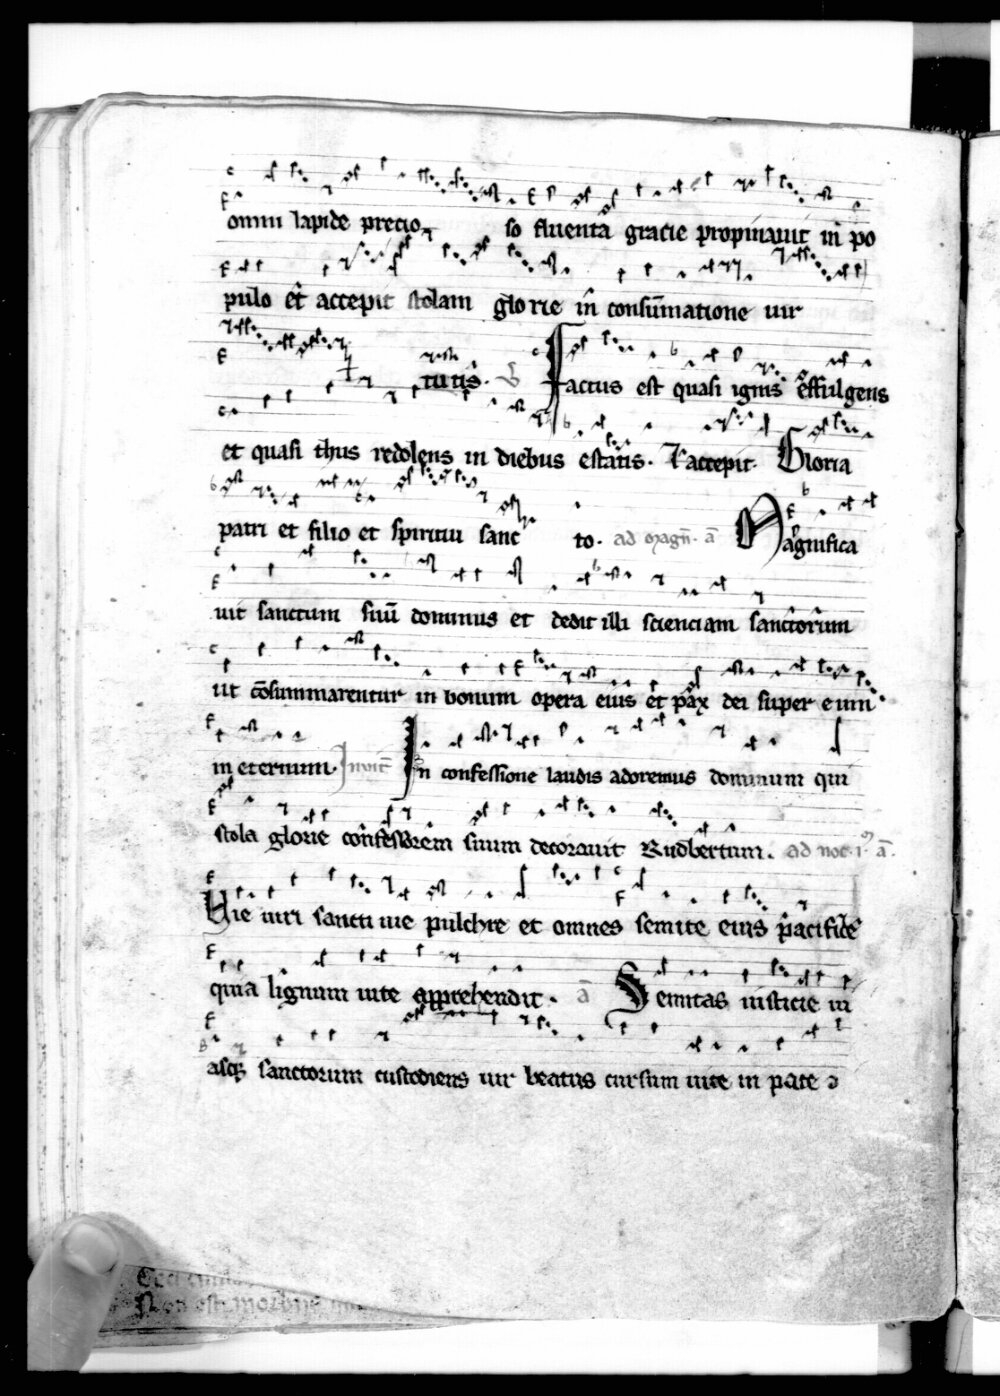 omni lapide precio so fluenta gracie propinauit in po
pulo et accepit stolam glorie in consūmatione uir
tutis. V Factus est quasi ignis effulgens
et quasi thus redolens in diebus estatis. Et accepit. Gloria
patri et filio et spiritui sanc to. ad magn̄. ā Magnifica
uit sanctum suū dominus et dedit illi scienciam sanctorum
ut cōsummarentur in bonum opera eius et pax dei super eum
in eternum. Inuit̄ In confessione laudis adoremus dominum qui
stola glorie confessorem suum decorauit Rudbertum. ad noc. i. ā.
Uie uiri sancti uie pulchre et omnes semite eius pacifice
quia lignum uite apprehendit. ā Semitas iusticie ui
asq; sanctorum custodiens uir beatus cursum uite in pace